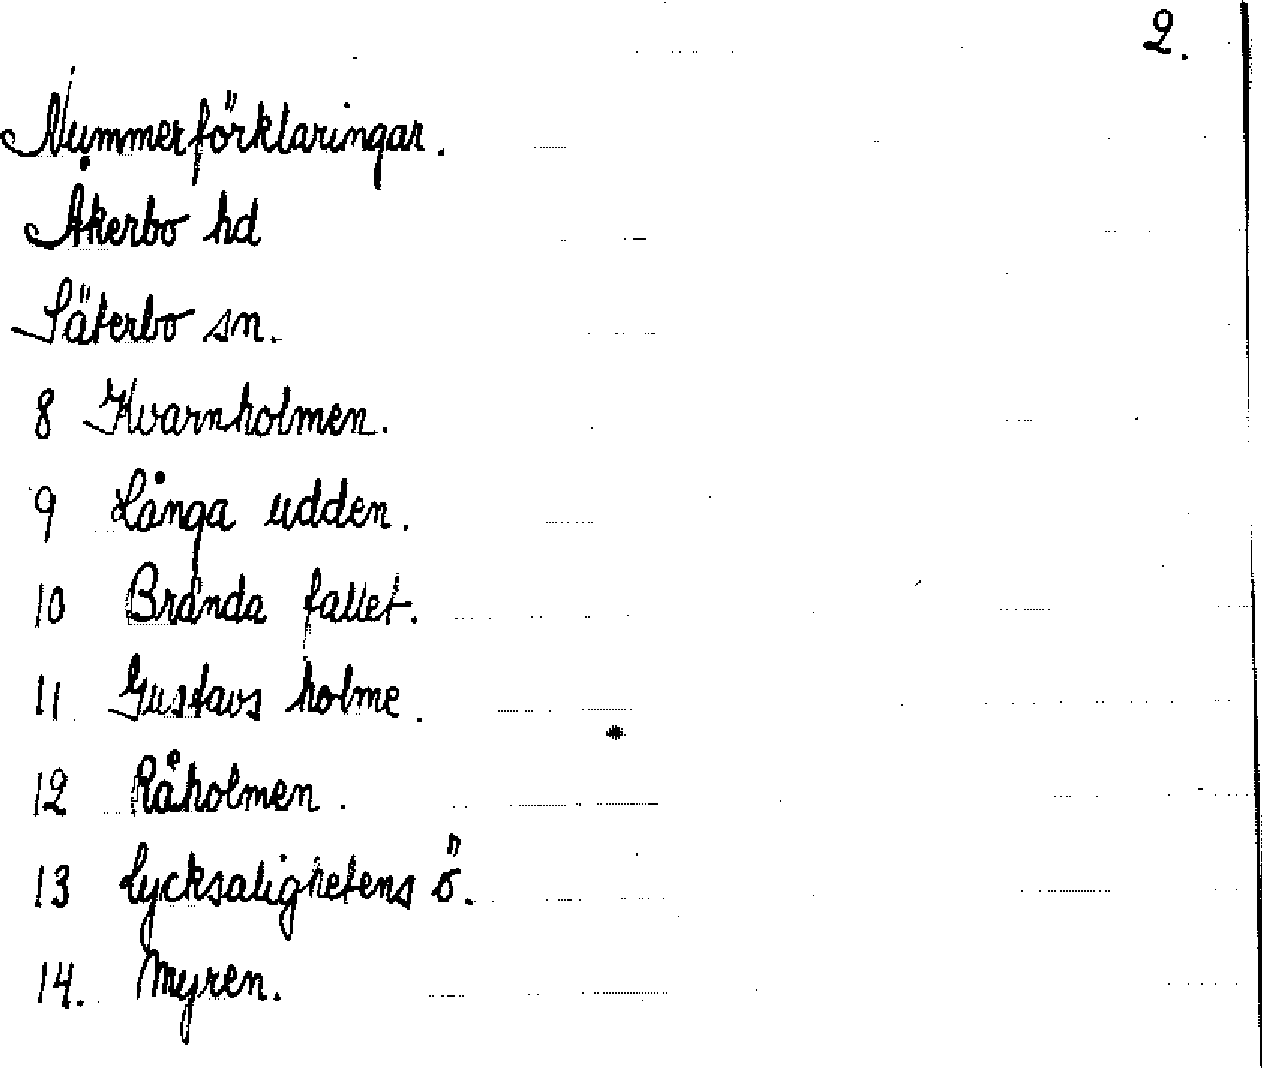 2.
Nummerförklaringar.
Åkerbo hd
Säterbo sn.
8 Kvarnholmen.
9 Långa udden.
10 Brända fallet.
11 Gustavs holme.
12 Råholmen.
13 Lycksalighetens ö.
14. Myren.